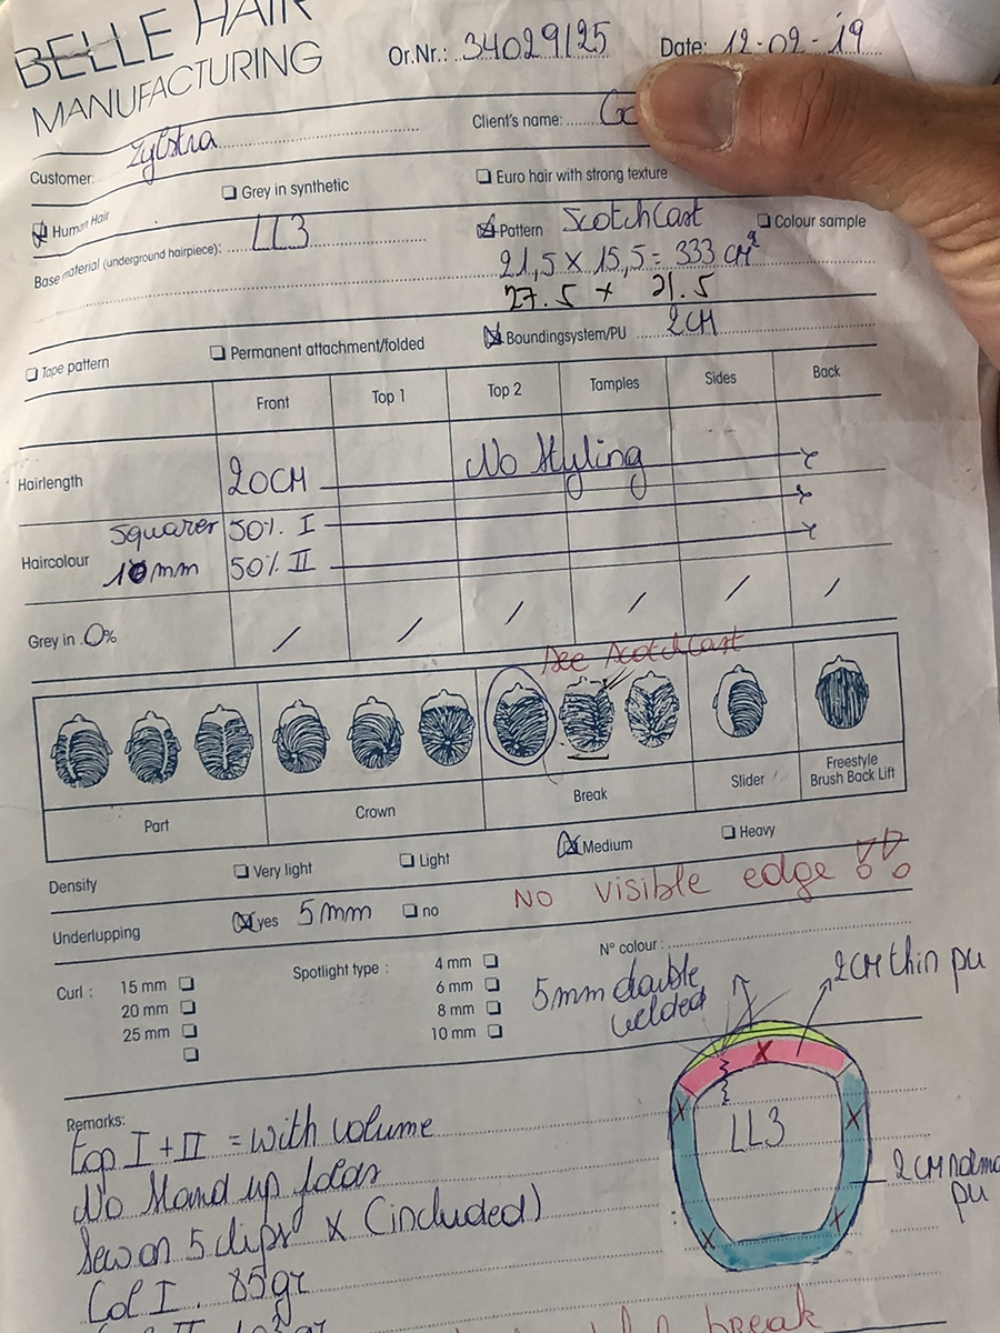 BELLE HAIR
MANUFACTURING
Or.Nr.: 34029/25 Date: 12-02-19
Customer: Zylstra Client's name:
Human Hair Grey in synthetic Euro hair with strong texture
Base material (underground hairpiece): LL3 Pattern ScotchCast Colour sample
21,5 x 15,5 = 333 CM²
27.5 x 21.5
Tape pattern Permanent attachment/folded Boundingsystem/PU 2CM
Front Top 1 Top 2 Tamples Sides Back
Hairlength 20CM No Styling
Haircolour Squarer 50% I
10mm 50% II
Grey in 0%
See Scotchcast
Part Crown Break Slider Freestyle
Brush Back Lift
Density Very light Light Medium Heavy
Underlupping yes 5mm no NO visible edge !!
Curl : 15 mm Spotlight type : 4 mm N° colour :
20 mm 6 mm 5mm double 2CM thin pu
25 mm 8 mm welded
10 mm
X
X X
LL3
2CM
pu
X X
Remarks:
Top I + II = with volume
No stand up
Sew on 5 clips X (included)
Col I. 85gr
break